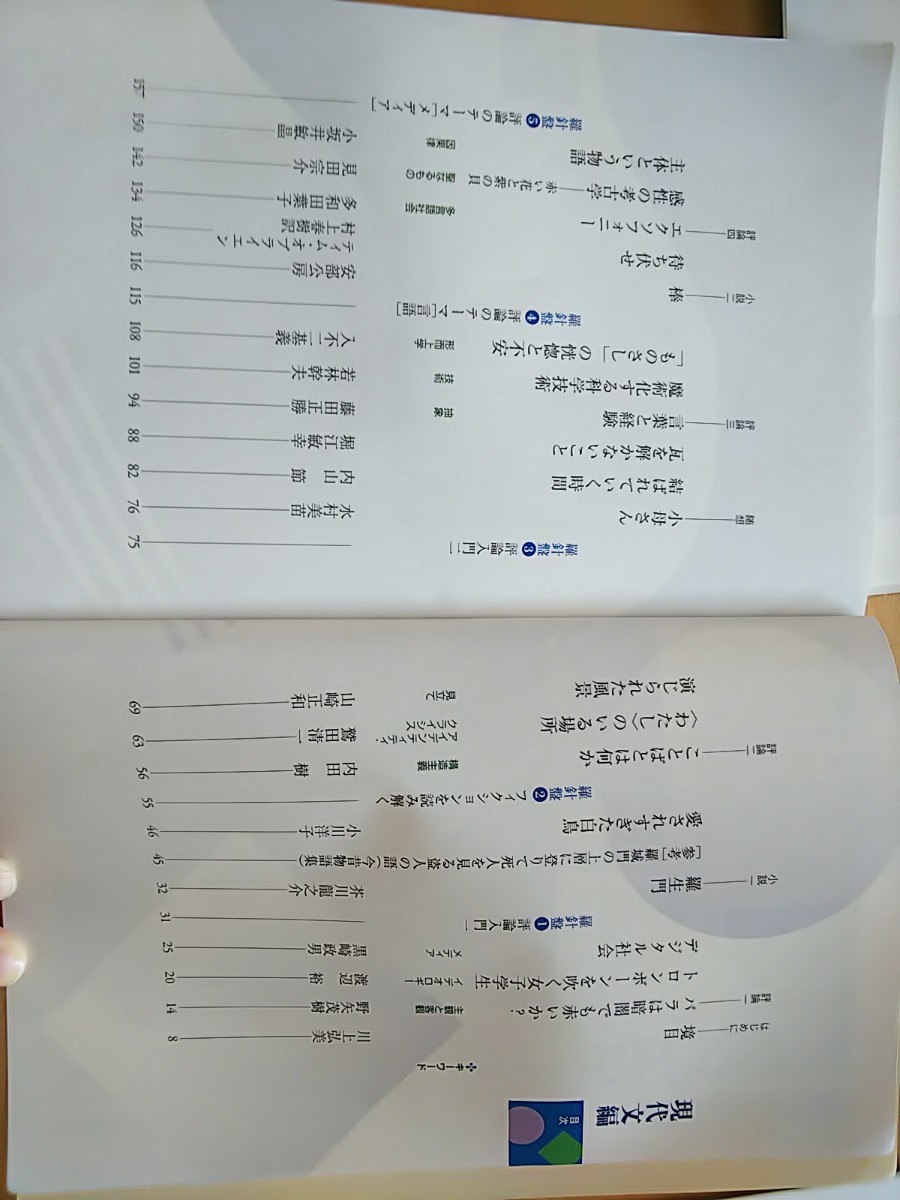 現代文編
目次
✤キーワード
はじめに――境目 川上弘美 8
評論一――バラは暗闇でも赤いか? 主観と客観 野矢茂樹 14
トロンボーンを吹く女子学生 イデオロギー 渡辺裕 20
デジタル社会 メディア 黒崎政男 25
羅針盤❶ 評論入門一 31
小説一――羅生門 芥川龍之介 32
[参考]羅城門の上層に登りて死人を見る盗人の語(今昔物語集) 45
愛されすぎた白鳥 小川洋子 46
羅針盤❷ フィクションを読み解く 55
評論二――ことばとは何か 構造主義 内田樹 56
〈わたし〉のいる場所 アイデンティティ・クライシス 鷲田清一 63
演じられた風景 見立て 山崎正和 69
羅針盤❸ 評論入門二 75
随想――小母さん 水村美苗 76
結ばれていく時間 内山節 82
瓦を解かないこと 堀江敏幸 88
評論三――言葉と経験 抽象 藤田正勝 94
魔術化する科学技術 技術 若林幹夫 101
「ものさし」の恍惚と不安 形而上学 入不二基義 108
羅針盤❹ 評論のテーマ[言語] 115
小説二――棒 安部公房 116
待ち伏せ ティム・オブライエン 村上春樹訳 126
評論四――エクソフォニー 多言語社会 多和田葉子 134
感性の考古学――赤い花と紫の貝 聖なるもの 見田宗介 142
主体という物語 因果律 小坂井敏晶 150
羅針盤❺ 評論のテーマ[メディア] 157